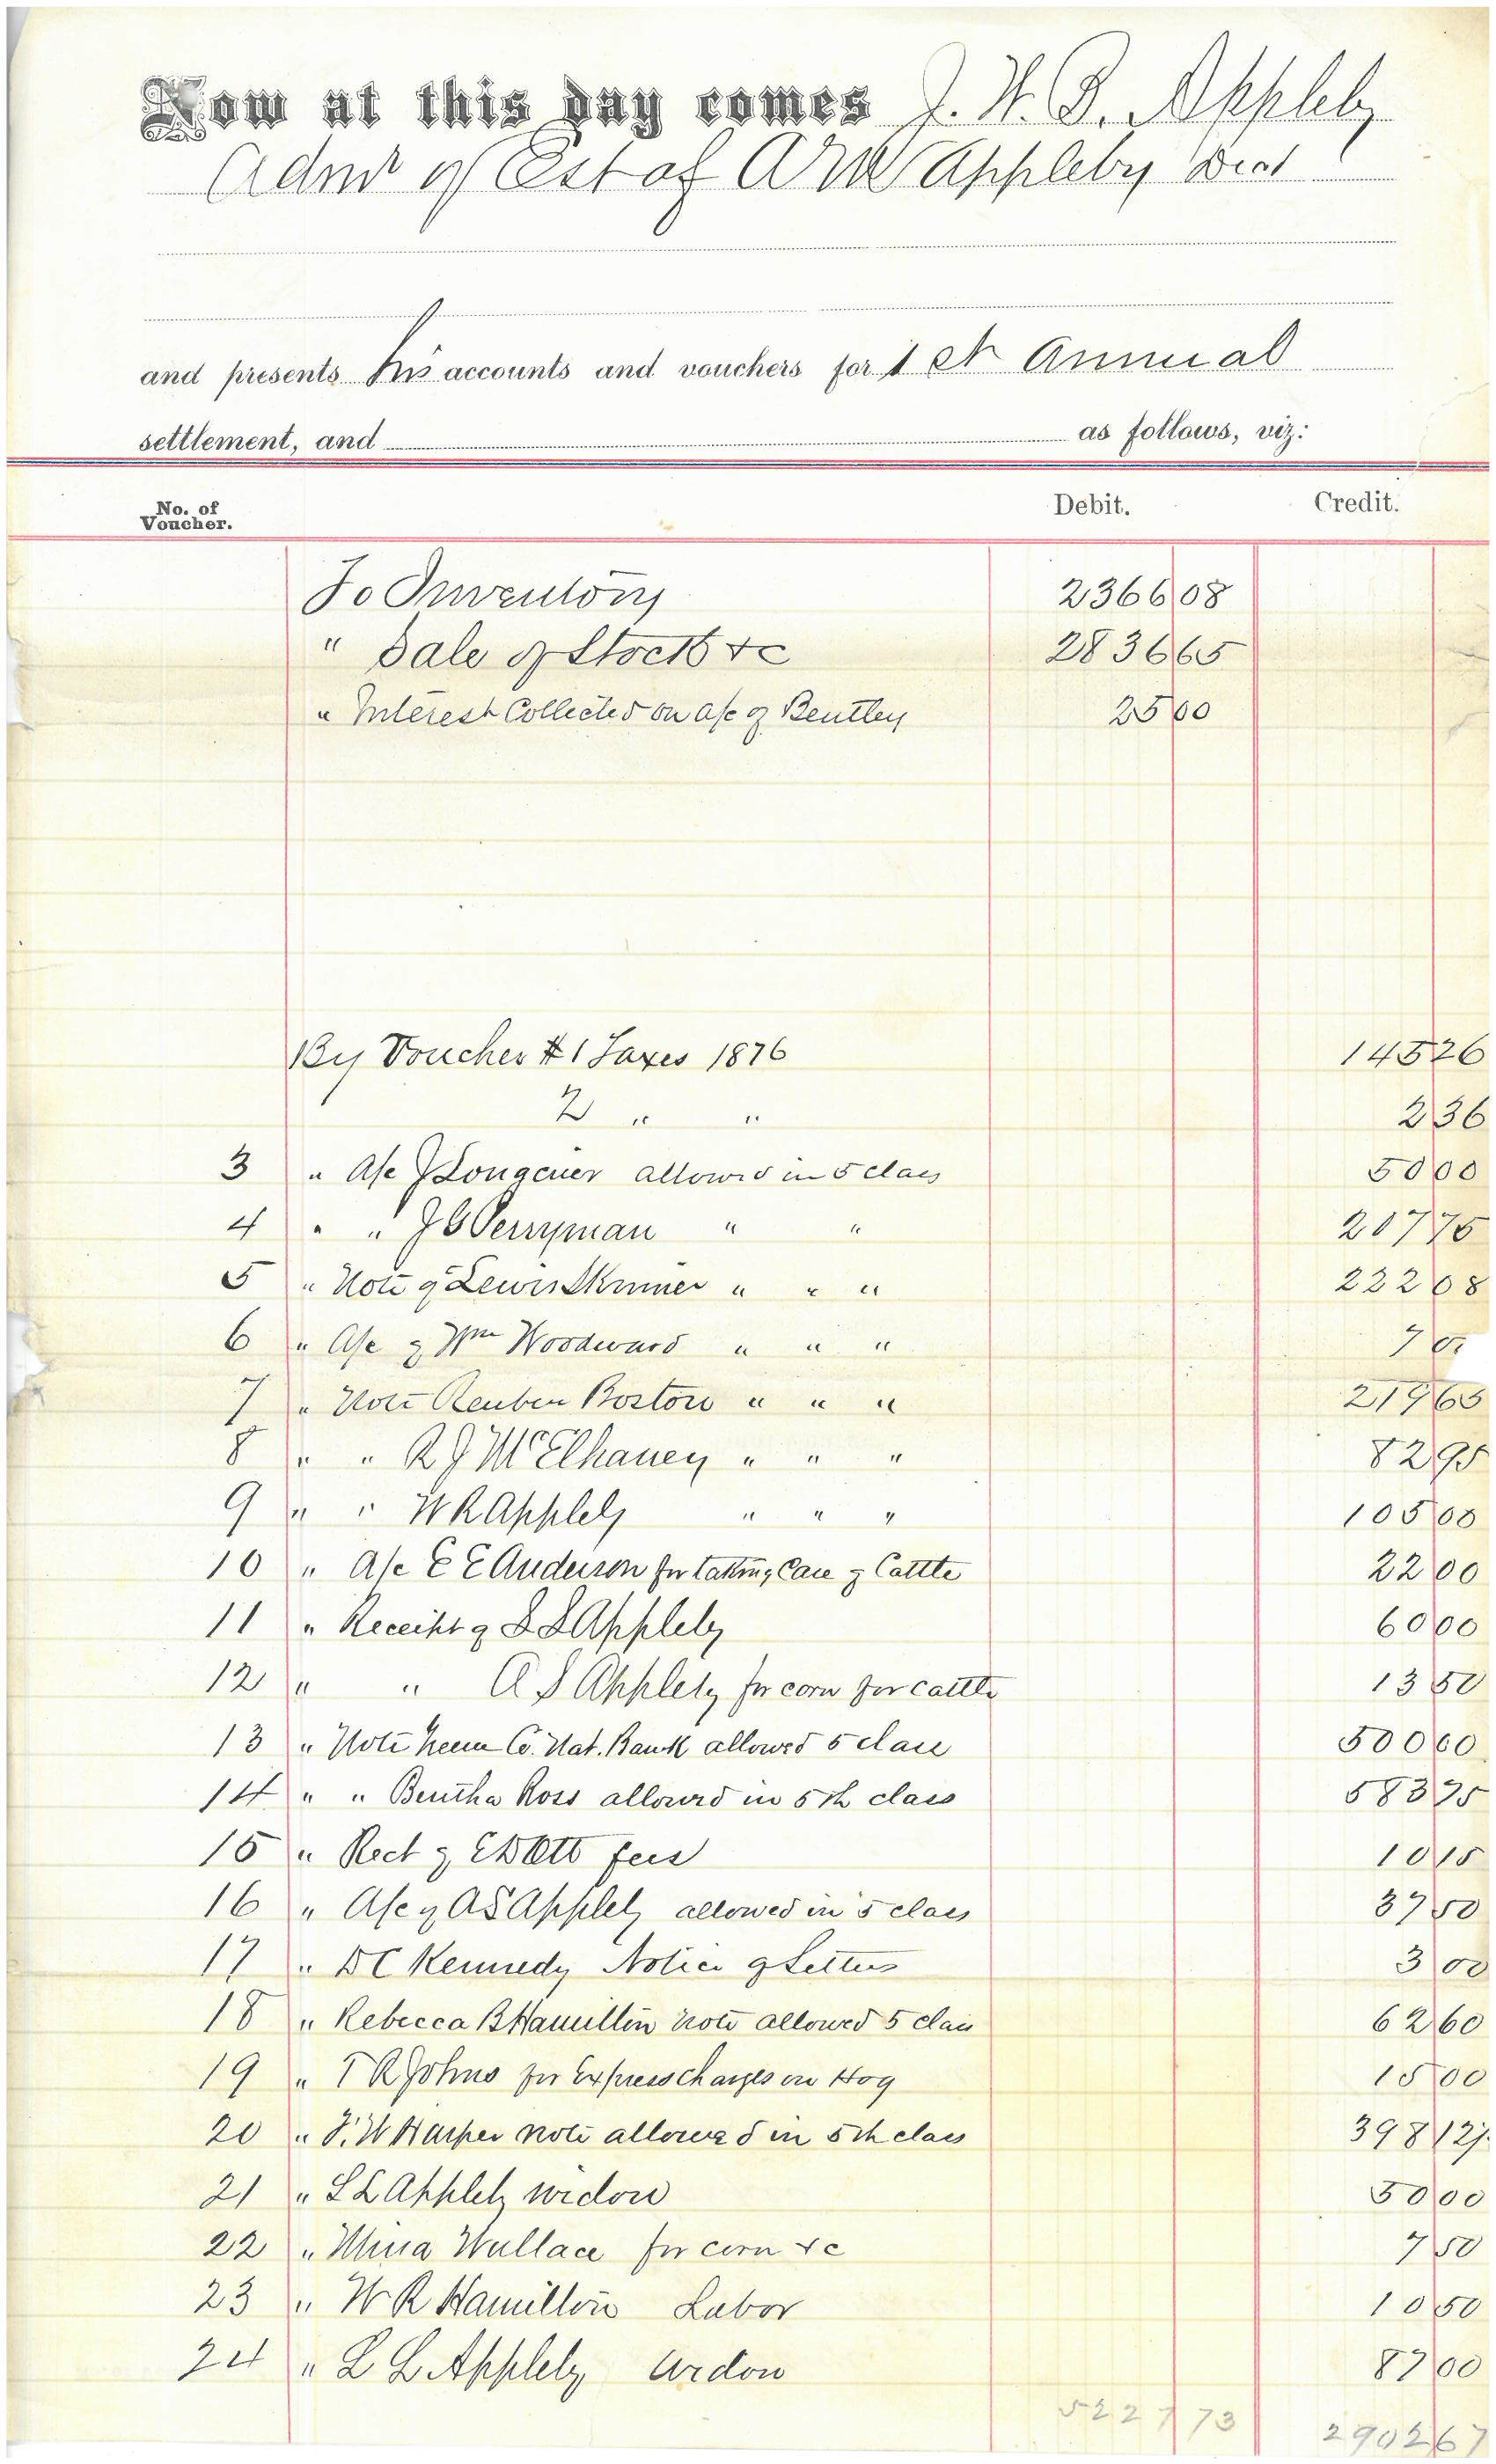 Now at this day comes J. W. B. Appleby
Admr of Est of A M Appleby Decd
and presents his accounts and vouchers for 1st Annual
settlement, and as follows, viz:
No. of Voucher. Debit. Credit.
To Inventory 2366 08
" Sale of Stock &c 2836 65
" Interest Collected on a/c of Bentley 25 00
By Voucher # 1 Taxes 1876 145 26
2 " " 2 36
3 " A/c Longcuer allowed in 5 class 50 00
4 " " J C Perryman " " 207 75
5 " Note of Lewis Skinner " " " 222 08
6 " A/c of Wm Woodward " " "
7 " Note Reuben Boston " " " 219 65
8 " " R J McElhaney " " " 82 95
9 " " W R Appleby " " " 105 00
10 " A/c E E Anderson for taking Care of Cattle 22 00
11 " Receipt of L L Appleby 60 00
12 " " A S Appleby for corn for cattle 13 50
13 " Note Green Co. Nat. Bank allowed 5 class 500 00
14 " " Bertha Ross allowed in 5th class 583 75
15 " Rect of Ott fees 10 15
16 " A/c of A S Appleby allowed in 5 class 37 50
17 " D C Kennedy Notice of Letters 3 00
18 " Rebecca B Hamilton note allowed 5 class 62 60
19 " T R Johns for Express charges on Hog 15 00
20 " J. W Harper note allowed in 5th class 398 12½
21 " L L Appleby widow 50 00
22 " Wallace for corn &c 7 50
23 " W R Hamilton Labor 10 50
24 " L L Appleby widow 87 00
5227 73 2902 67